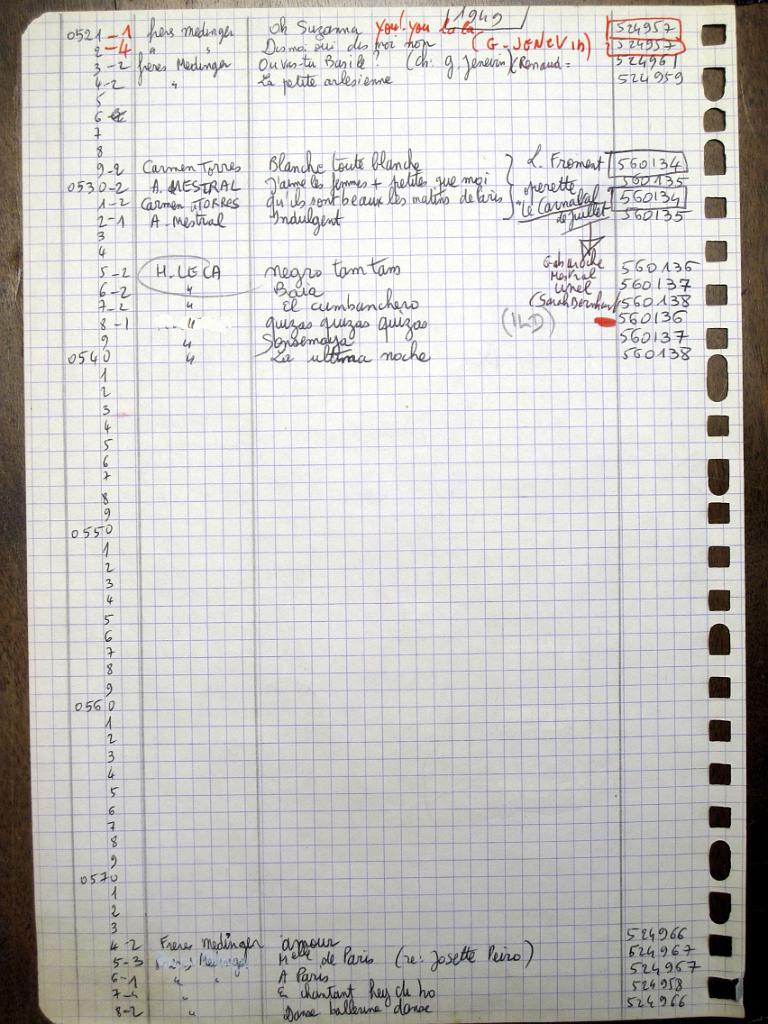 1949
0521-1 freres medinger Oh Suzanna You! you la la 524957
2-4 " " Dis moi oui dis moi non (G-JENEVIN) 524957
3-2 freres Medinger Ou vas-tu Basile? (Ch. G. Jenevin) (Renaud= 524961
4-2 " La petite arlesienne 524959
5
6
7
8
9-2 Carmen Torres Blanche toute blanche L. Froment 560134
0530-2 A. MESTRAL J'aime les femmes + petites que moi operette 560135
1-2 Carmen TORRES qu'ils sont beaux les matins de Paris "Le Carnaval 560134
2-1 A. Mestral Indulgent de juillet" 560135
3
4
5-2 H. LECA negro tam tam Gabaroche 560136
6-2 " Baia Mestral 560137
7-2 " El cumbanchero (Sarah Bernhardt) 560138
8-1 " quizas quizas quizas (ILD) 560136
9 " Sensemaya 560137
0540 " La ultima noche 560138
1
2
3
4
5
6
7
8
9
0550
1
2
3
4
5
6
7
8
9
0560
1
2
3
4
5
6
7
8
9
0570
1
2
3
4-2 Freres medinger amour 524966
5-3 Freres Medinger Melle de Paris (re: Josette Peiro) 524967
6-1 " " A Paris 524967
7-4 " " E chantant hey di ho 524958
8-2 " Danse ballerine danse 524966